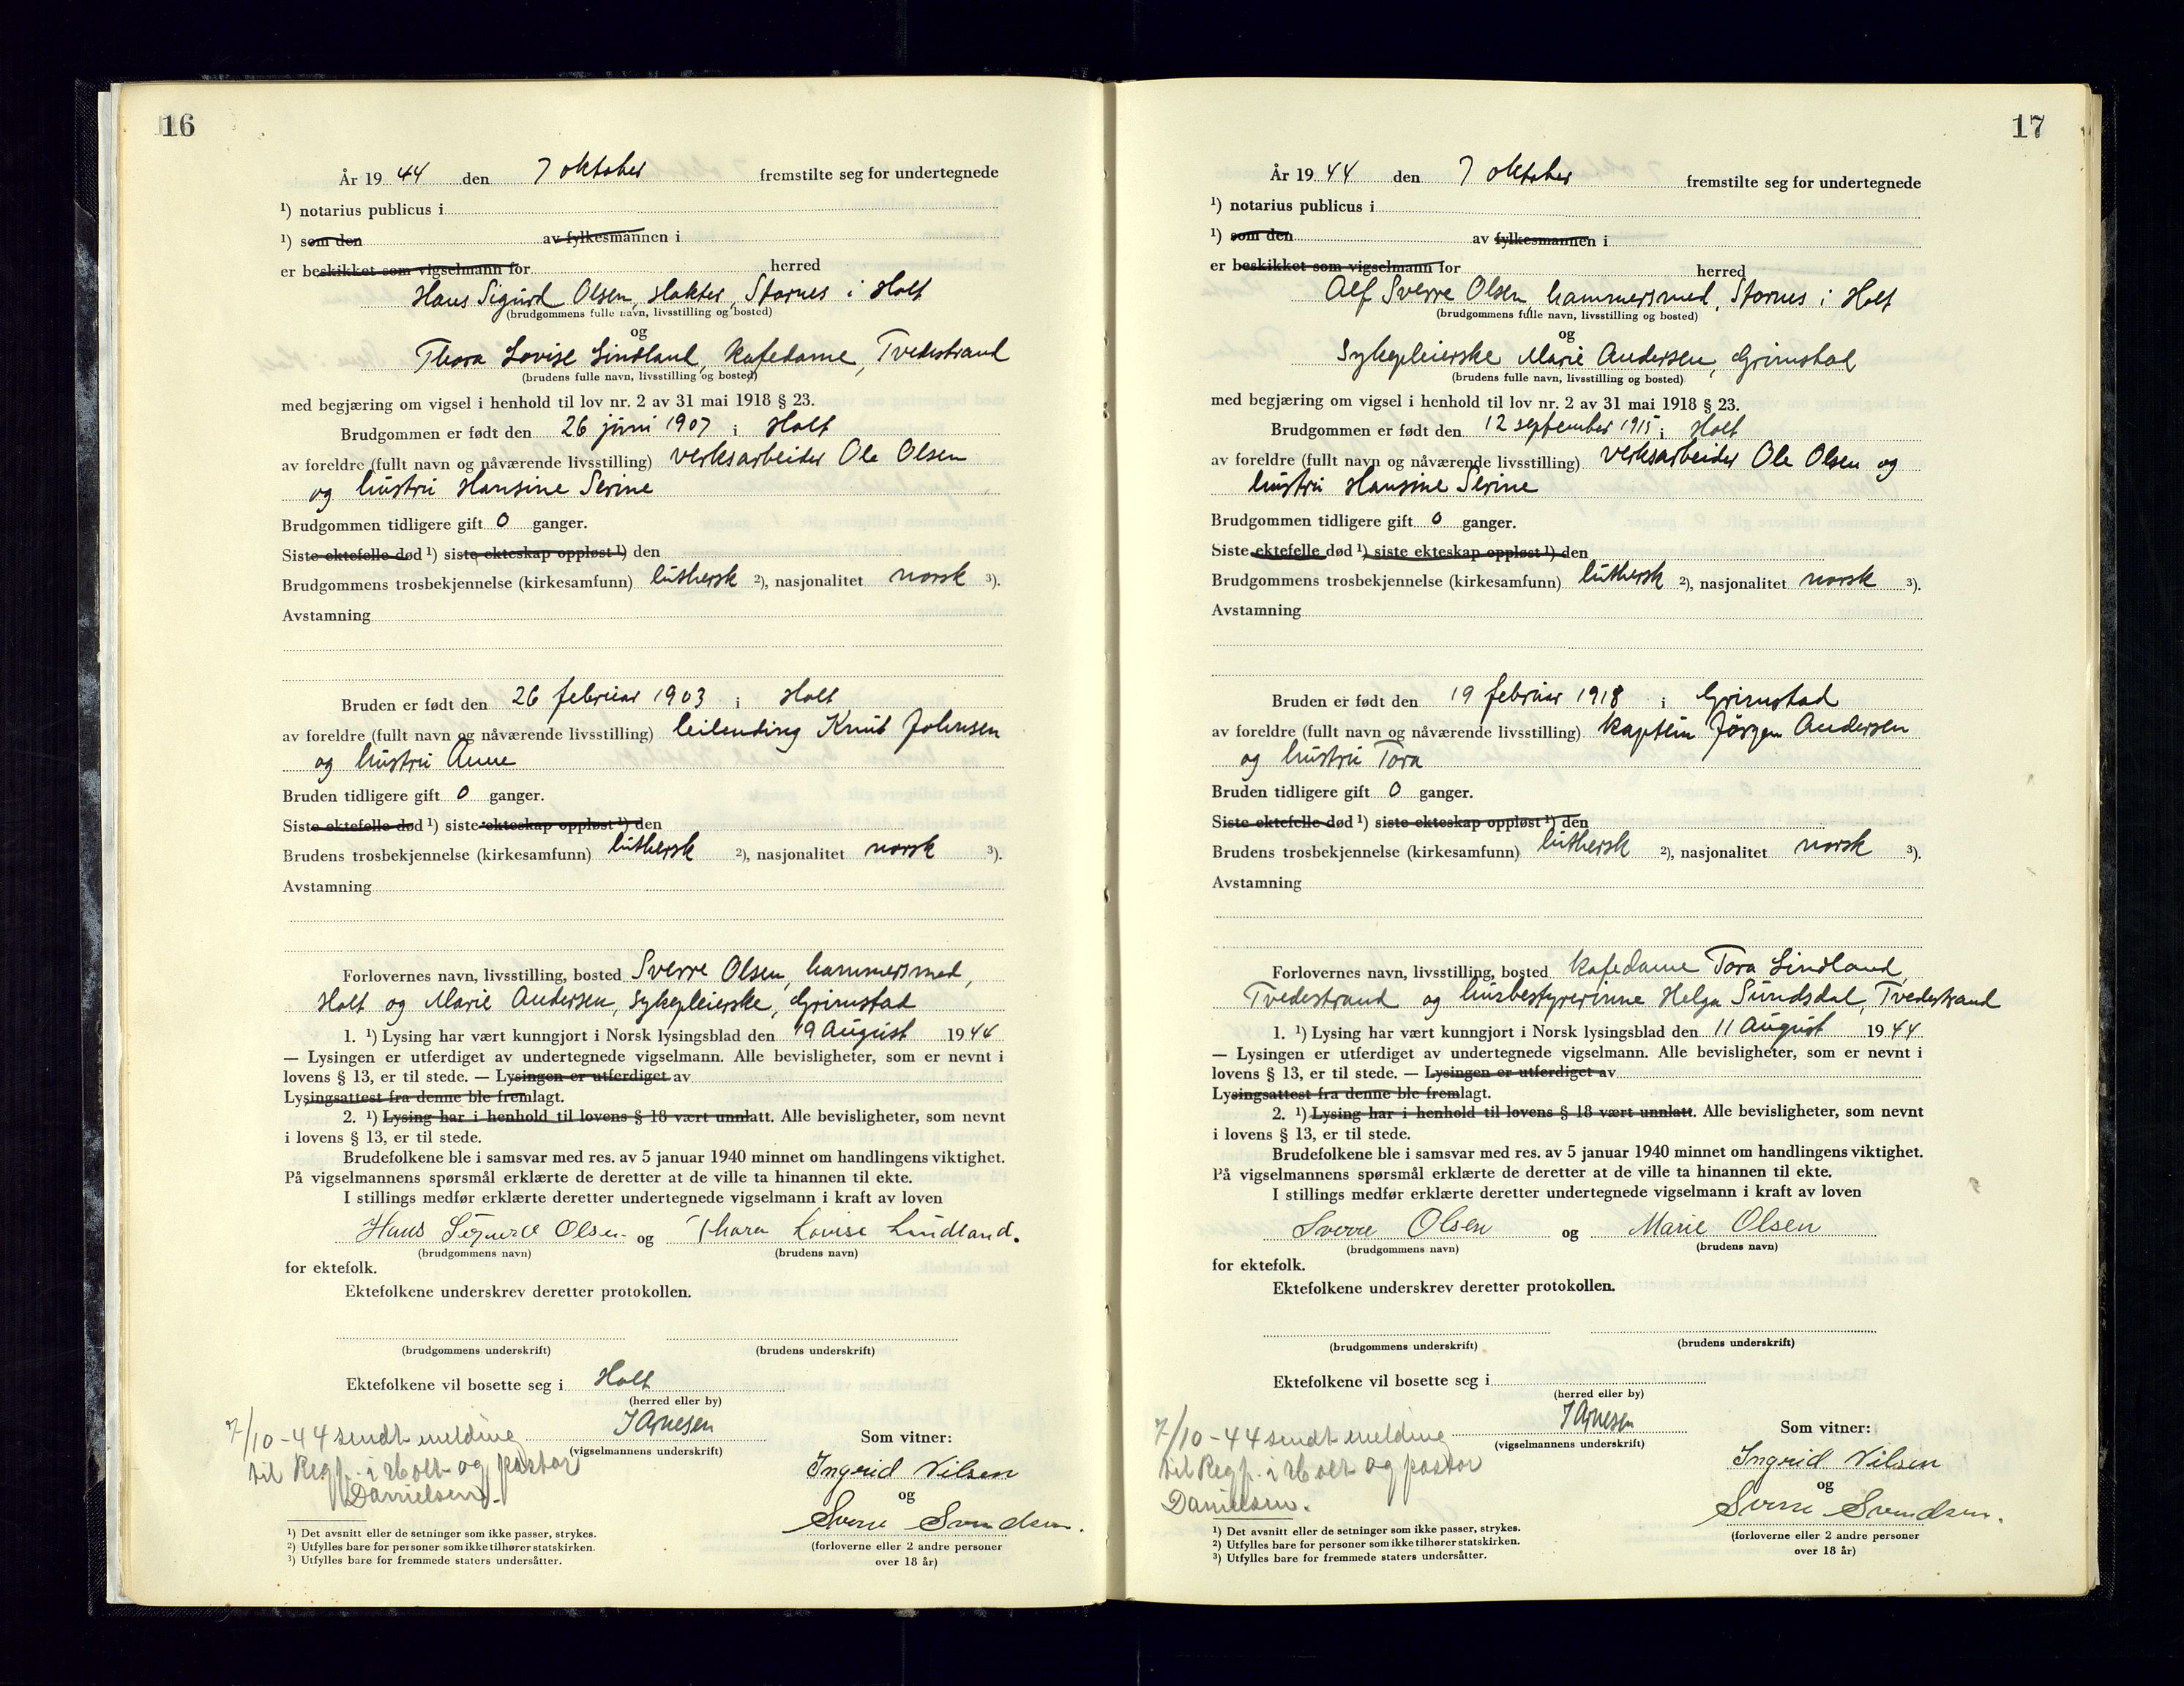 16
År 19 44 den 7 oktober fremstilte seg for undertegnede
¹) notarius publicus i
¹) som den av fylkesmannen i
er beskikket som vigselmann for herred
Hans Sigurd Olsen, slakter, Stornes i Holt
(brudgommens fulle navn, livsstilling og bosted)
og
Thora Lovise Lindland, kafedame, Tvedestrand
(brudens fulle navn, livsstilling og bosted)
med begjæring om vigsel i henhold til lov nr. 2 av 31 mai 1918 § 23.
Brudgommen er født den 26 juni 1907 i Holt
av foreldre (fullt navn og nåværende livsstilling) verksarbeider Ole Olsen
og hustru Hansine Serine
Brudgommen tidligere gift 0 ganger.
Siste ektefelle død ¹) siste ekteskap oppløst ¹) den
Brudgommens trosbekjennelse (kirkesamfunn) luthersk ²), nasjonalitet norsk ³).
Avstamning
Bruden er født den 26 februar 1903 i Holt
av foreldre (fullt navn og nåværende livsstilling) leilending Knut Johnsen
og hustru Anne
Bruden tidligere gift 0 ganger.
Siste ektefelle død ¹) siste ekteskap oppløst ¹) den
Brudens trosbekjennelse (kirkesamfunn) luthersk ²), nasjonalitet norsk ³).
Avstamning
Forlovernes navn, livsstilling, bosted Sverre Olsen, hammersmed,
Holt og Marie Andersen, sykepleierske, Grimstad
1. ¹) Lysing har vært kunngjort i Norsk lysingsblad den 19 August 1944
— Lysingen er utferdiget av undertegnede vigselmann. Alle bevisligheter, som er nevnt i
lovens § 13, er til stede. — Lysingen er utferdiget av
Lysingsattest fra denne ble fremlagt.
2. ¹) Lysing har i henhold til lovens § 18 vært unnlatt. Alle bevisligheter, som nevnt
i lovens § 13, er til stede.
Brudefolkene ble i samsvar med res. av 5 januar 1940 minnet om handlingens viktighet.
På vigselmannens spørsmål erklærte de deretter at de ville ta hinannen til ekte.
I stillings medfør erklærte deretter undertegnede vigselmann i kraft av loven
Hans Sigurd Olsen og Thora Lovise Lindland.
(brudgommens navn) (brudens navn)
for ektefolk.
Ektefolkene underskrev deretter protokollen.
(brudgommens underskrift) (brudens underskrift)
Ektefolkene vil bosette seg i Holt
(herred eller by)
(vigselmannens underskrift)
7/10-44 sendt melding
til Regf. i Holt og pastor
Danielsen.
Som vitner:
Ingrid Nilsen
og
Sverre Svendsen.
(forloverne eller 2 andre personer
over 18 år)
¹) Det avsnitt eller de setninger som ikke passer, strykes.
²) Utfylles bare for personer som ikke tilhører statskirken.
³) Utfylles bare for fremmede staters undersåtter.
17
År 19 44 den 7 oktober fremstilte seg for undertegnede
¹) notarius publicus i
¹) som den av fylkesmannen i
er beskikket som vigselmann for herred
Alf Sverre Olsen, hammersmed, Stornes i Holt
(brudgommens fulle navn, livsstilling og bosted)
og
Sykepleierske Marie Andersen, Grimstad
(brudens fulle navn, livsstilling og bosted)
med begjæring om vigsel i henhold til lov nr. 2 av 31 mai 1918 § 23.
Brudgommen er født den 12 september 1915 i Holt
av foreldre (fullt navn og nåværende livsstilling) verksarbeider Ole Olsen og
hustru Hansine Serine
Brudgommen tidligere gift 0 ganger.
Siste ektefelle død ¹) siste ekteskap oppløst ¹) den
Brudgommens trosbekjennelse (kirkesamfunn) luthersk ²), nasjonalitet norsk ³).
Avstamning
Bruden er født den 19 februar 1918 i Grimstad
av foreldre (fullt navn og nåværende livsstilling) kaptein Jörgen Andersen
og hustru Tora
Bruden tidligere gift 0 ganger.
Siste ektefelle død ¹) siste ekteskap oppløst ¹) den
Brudens trosbekjennelse (kirkesamfunn) luthersk ²), nasjonalitet norsk ³).
Avstamning
Forlovernes navn, livsstilling, bosted kafedame Tora Lindland,
Tvedestrand og husbestyrerinne Helga Sundsdal, Tvedestrand
1. ¹) Lysing har vært kunngjort i Norsk lysingsblad den 11 August 1944
— Lysingen er utferdiget av undertegnede vigselmann. Alle bevisligheter, som er nevnt i
lovens § 13, er til stede. — Lysingen er utferdiget av
Lysingsattest fra denne ble fremlagt.
2. ¹) Lysing har i henhold til lovens § 18 vært unnlatt. Alle bevisligheter, som nevnt
i lovens § 13, er til stede.
Brudefolkene ble i samsvar med res. av 5 januar 1940 minnet om handlingens viktighet.
På vigselmannens spørsmål erklærte de deretter at de ville ta hinannen til ekte.
I stillings medfør erklærte deretter undertegnede vigselmann i kraft av loven
Sverre Olsen og Marie Olsen
(brudgommens navn) (brudens navn)
for ektefolk.
Ektefolkene underskrev deretter protokollen.
(brudgommens underskrift) (brudens underskrift)
Ektefolkene vil bosette seg i
(herred eller by)
(vigselmannens underskrift)
7/10-44 sendt melding
til Regf. i Holt og pastor
Danielsen.
Som vitner:
Ingrid Nilsen
og
Sverre Svendsen.
(forloverne eller 2 andre personer
over 18 år)
¹) Det avsnitt eller de setninger som ikke passer, strykes.
²) Utfylles bare for personer som ikke tilhører statskirken.
³) Utfylles bare for fremmede staters undersåtter.